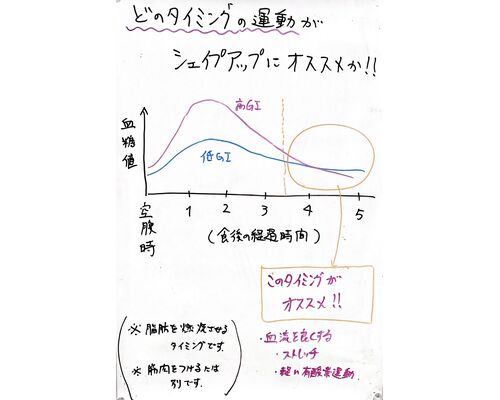 どのタイミングの運動が
シェイプアップにオススメか!!
血糖値
高GI
低GI
空腹時
1 2 3 4 5
(食後の経過時間)
このタイミングが
オススメ!!
※ 脂肪を燃焼させる
タイミングです。
※ 筋肉をつけるには
別です。
・血流を良くする
・ストレッチ
・軽い有酸素運動